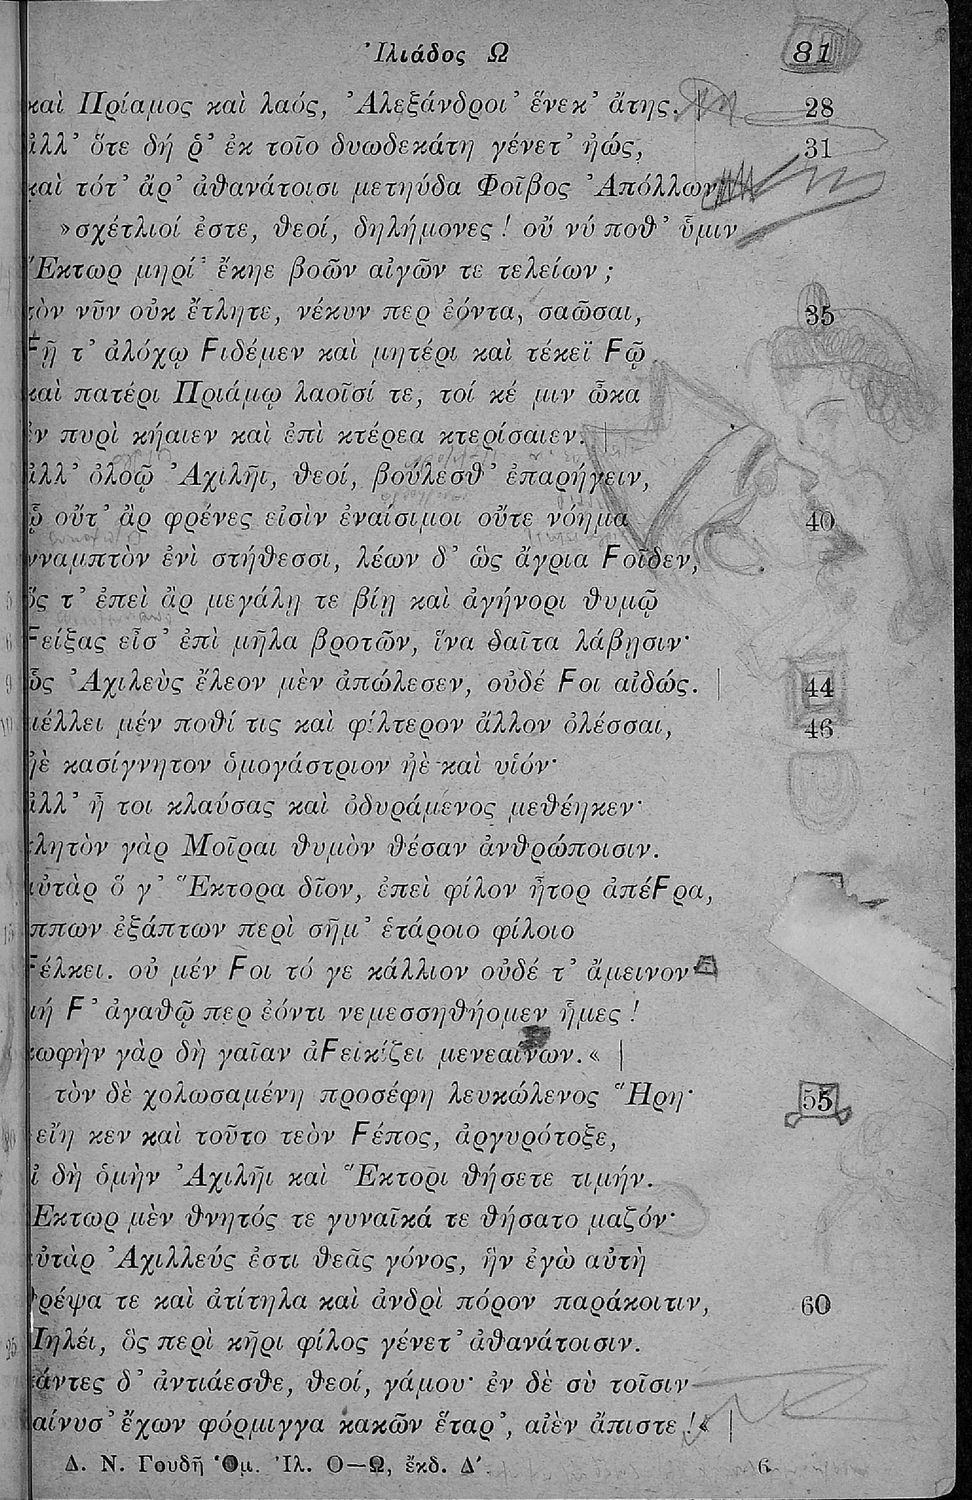 Ἰλιάδος Ω 81
καὶ Πρίαμος καὶ λαός, Ἀλεξάνδροι᾽ ἕνεκ᾽ ἄτης. 28
ἀλλ᾽ ὅτε δή ῥ᾽ ἐκ τοῖο δυωδεκάτη γένετ᾽ ἠώς, 31
καὶ τότ᾽ ἄρ᾽ ἀθανάτοισι μετηύδα Φοῖβος Ἀπόλλων
»σχέτλιοί ἐστε, θεοί, δηλήμονες! οὔ νύ ποθ᾽ ὗμιν
Ἕκτωρ μηρί᾽ ἔκηε βοῶν αἰγῶν τε τελείων;
τὸν νῦν οὐκ ἔτλητε, νέκυν περ ἐόντα, σαῶσαι, 35
Ϝῇ τ᾽ ἀλόχῳ Ϝιδέμεν καὶ μητέρι καὶ τέκεϊ Ϝῷ
καὶ πατέρι Πριάμῳ λαοῖσί τε, τοί κέ μιν ὦκα
ἐν πυρὶ κήαιεν καὶ ἐπὶ κτέρεα κτερίσαιεν.
ἀλλ᾽ ὀλοῷ Ἀχιλῆι, θεοί, βούλεσθ᾽ ἐπαρήγειν,
ᾧ οὔτ᾽ ἂρ φρένες εἰσὶν ἐναίσιμοι οὔτε νόημα 40
γναμπτὸν ἐνὶ στήθεσσι, λέων δ᾽ ὣς ἄγρια Ϝοῖδεν,
ὅς τ᾽ ἐπεὶ ἂρ μεγάλῃ τε βίῃ καὶ ἀγήνορι θυμῷ
Ϝείξας εἶσ᾽ ἐπὶ μῆλα βροτῶν, ἵνα δαῖτα λάβῃσιν·
ὣς Ἀχιλεὺς ἔλεον μὲν ἀπώλεσεν, οὐδέ Ϝοι αἰδώς. 44
μέλλει μέν ποθί τις καὶ φίλτερον ἄλλον ὀλέσσαι, 46
ἠὲ κασίγνητον ὁμογάστριον ἠὲ καὶ υἱόν·
ἀλλ᾽ ἦ τοι κλαύσας καὶ ὀδυράμενος μεθέηκεν·
τλητὸν γὰρ Μοῖραι θυμὸν θέσαν ἀνθρώποισιν.
αὐτὰρ ὅ γ᾽ Ἕκτορα δῖον, ἐπεὶ φίλον ἦτορ ἀπέϜρα,
ἵππων ἐξάπτων περὶ σῆμ᾽ ἑτάροιο φίλοιο
Ϝέλκει. οὐ μέν Ϝοι τό γε κάλλιον οὐδέ τ᾽ ἄμεινον
μή Ϝ᾽ ἀγαθῷ περ ἐόντι νεμεσσηθήομεν ἦμες!
κωφὴν γὰρ δὴ γαῖαν ἀϜεικίζει μενεαίνων.«
τὸν δὲ χολωσαμένη προσέφη λευκώλενος Ἥρη· 55
εἴη κεν καὶ τοῦτο τεὸν Ϝέπος, ἀργυρότοξε,
εἰ δὴ ὁμὴν Ἀχιλῆι καὶ Ἕκτορι θήσετε τιμήν.
Ἕκτωρ μὲν θνητός τε γυναῖκά τε θήσατο μαζόν·
αὐτὰρ Ἀχιλλεύς ἐστι θεᾶς γόνος, ἣν ἐγὼ αὐτὴ
θρέψα τε καὶ ἀτίτηλα καὶ ἀνδρὶ πόρον παράκοιτιν, 60
Πηλέι, ὃς περὶ κῆρι φίλος γένετ᾽ ἀθανάτοισιν.
πάντες δ᾽ ἀντιάεσθε, θεοί, γάμου· ἐν δὲ σὺ τοῖσιν
δαίνυσ᾽ ἔχων φόρμιγγα κακῶν ἕταρ᾽, αἰὲν ἄπιστε!«
Δ. Ν. Γουδῆ Ὁμ. Ἰλ. Ο—Ω, ἔκδ. Δ΄. 6